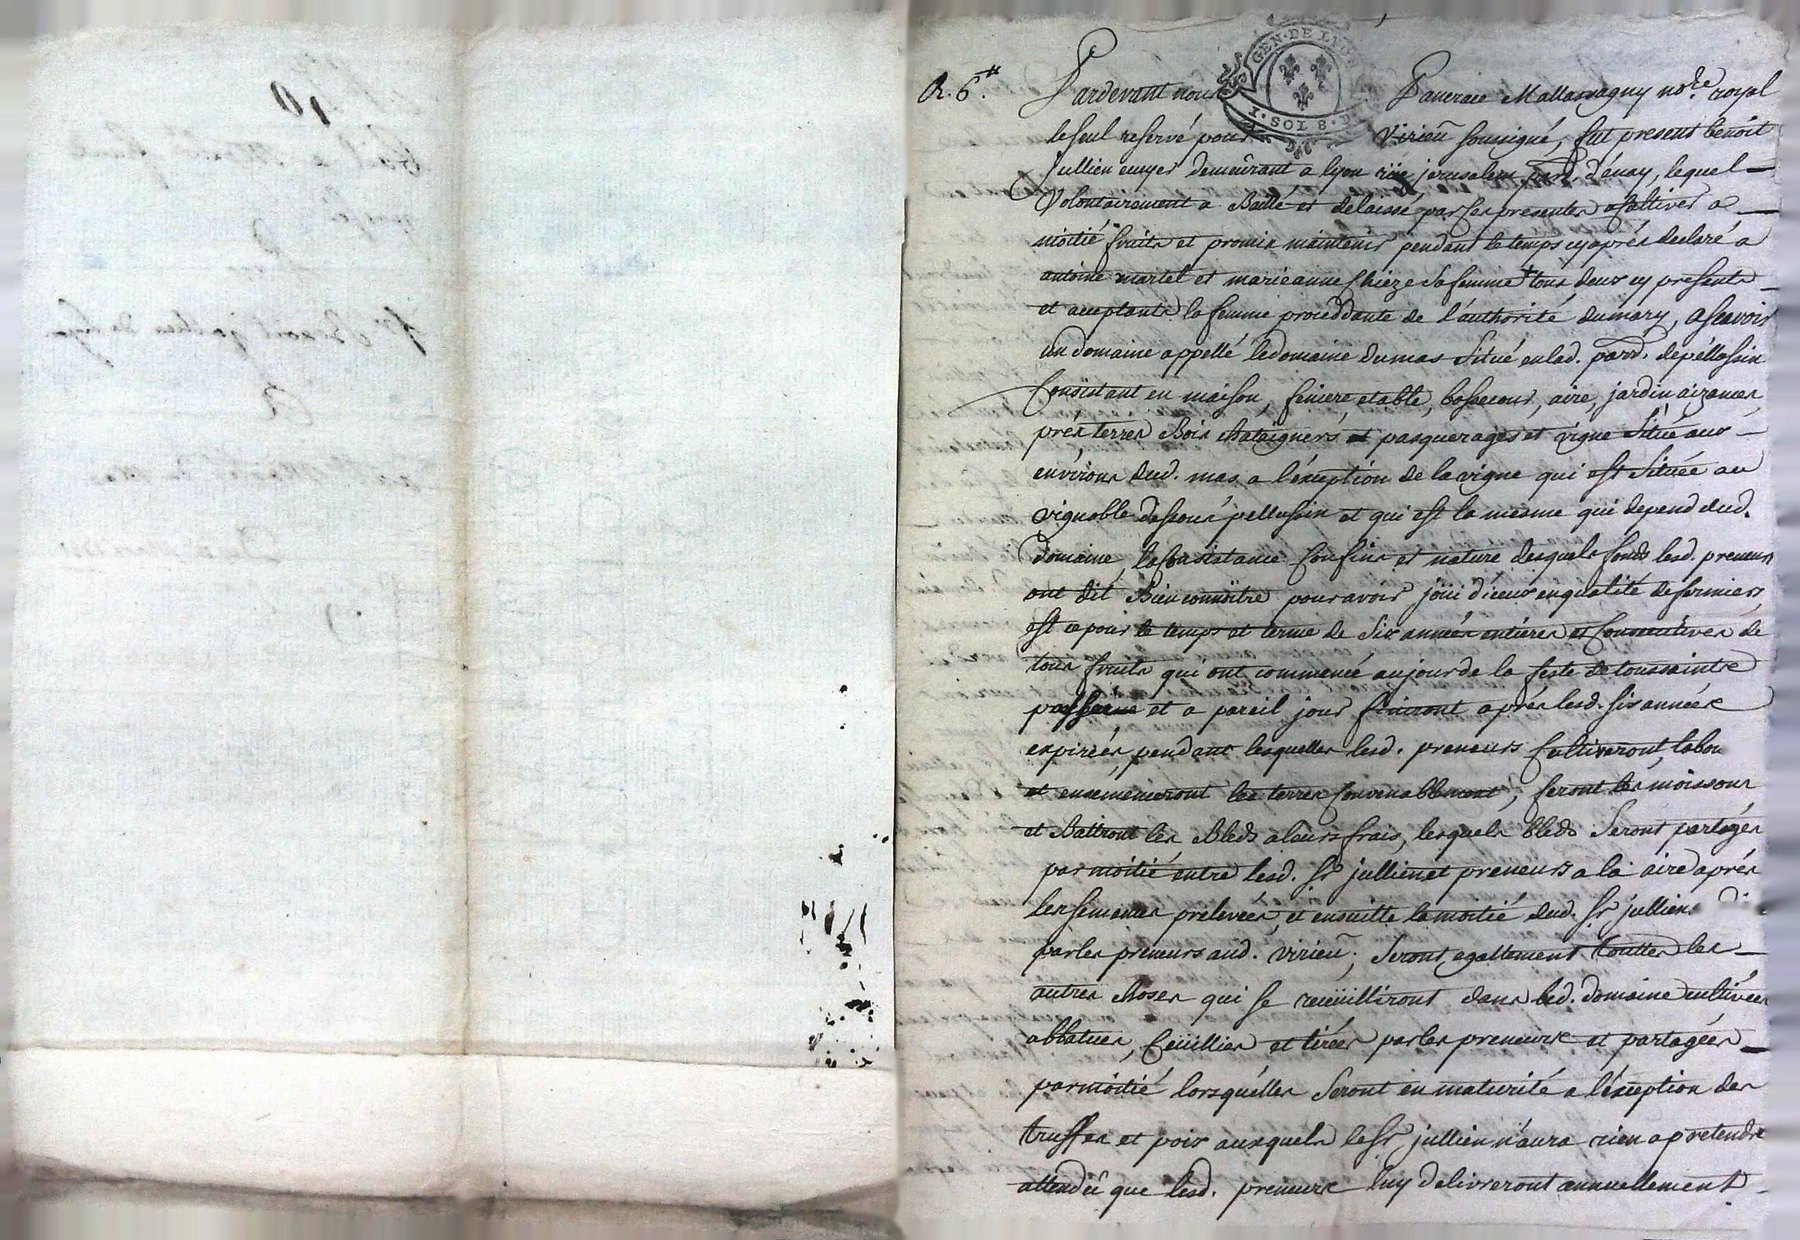 R. 6.tt
GEN. DE LYON
1. SOL 8. D.
Pardevant nous Pancrace Mallassagny no.re royal
le seul reservé pour Virieu soussigné, fut present benoit
Jullien ecuyer demeurant a lyon rüe jerusalem par. d'énay, lequel
Volontairement a Baillé et delaissé par ses presentes a cultiver a
moitié fruits et promis maintenir pendant le temps cy aprés declaré a
antoine martel et marieanne Chieze sa femme tous deux cy presents
et acceptants la femme proceddante de l'authorité du mary, a scavoir
un domaine appellé le domaine du mas Situé en lad. parr. de péllussin
Consistant en maison, feniere, etable, bassecour, aire, jardin aizances,
prés, terres Bois chataigners et pasquerages et vigne Situé aux
environs dud. mas, a l'éxception de la vigne qui est Située au
vignoble dessous pellussin et qui est la mesme qui depend dud.
domaine, la Consistance Confins et nature desquels fonds lesd. preneurs
ont dit Bien connoître pour avoir joüi d'iceux en qualité de fermiers,
est ce pour le temps et terme de Six années entiéres et Consecutives de
tous fruits qui ont commencé au jour de la feste de toussaintre
passée et a pareil jour finiront aprés lesd. six années
expirées, pendant lesquelles lesd. preneurs Cultiveront, labou
et ensemenceront les terres Convenablement, feront les moissons
et Battront les Bleds a leurs frais, lesquels bleds Seront partagés
par moitié entre lesd. Sr. jullien et preneurs a la aire aprés
les semences prelevées, et ensuitte la moitié dud. Sr jullien
par les preneurs aud. virieu; Seront egallement touttes les
autres choses qui se recüeilliront dans led. domaine cultivées
abbatues, Ceüillies et tirées par les preneurs et partagées
par moitié lorsquélles Seront en maturité a l'éxception des
truffes et pois auxquels le Sr. jullien n'aura rien a pretendre
attendu que lesd. preneurs luy delivreront annuellement